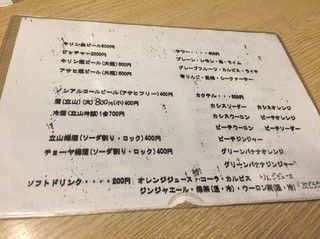 キリン生ビール500円
ピッチャー2000円
キリン瓶ビール(大瓶)600円
アサヒ瓶ビール(大瓶)600円
ノンアルコールビール(アサヒフリー)400円
酒(立山)(大)800円(小)400円
冷酒(立山吟醸)1合700円
立山梅酒(ソーダ割り・ロック)400円
チョーヤ梅酒(ソーダ割り・ロック)400円
サワー・・・・400円
プレーン・レモン・梅・ライム
グレープフルーツ・カルピス・ライチ
青りんご・巨峰・シークァーサー
カクテル・・・・500円
カシスソーダー カシスオレンジ
カシスウーロン ピーチオレンジ
ピーチウーロン ピーチソーダー
ピーチジンジャー
グリーンバナナオレンジ
グリーンバナナジンジャー
ソフトドリンク・・・・200円 オレンジジュース・コーラ・カルピス りんごジュース
ジンジャエール・緑茶(温・冷)・ウーロン茶(温・冷)